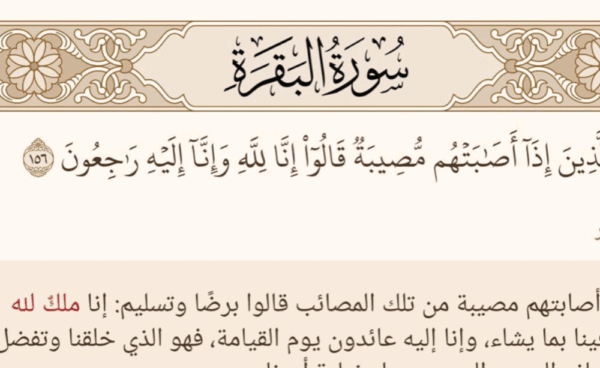 سُورَةُ البَقَرَةِ
إِذَآ أَصَٰبَتۡهُم مُّصِيبَةٞ قَالُوٓاْ إِنَّا لِلَّهِ وَإِنَّآ إِلَيۡهِ رَٰجِعُونَ ١٥٦
أصابتهم مصيبة من تلك المصائب قالوا برضًا وتسليم: إنا ملكٌ لله
بما يشاء، وإنا إليه عائدون يوم القيامة، فهو الذي خلقنا وتفضل